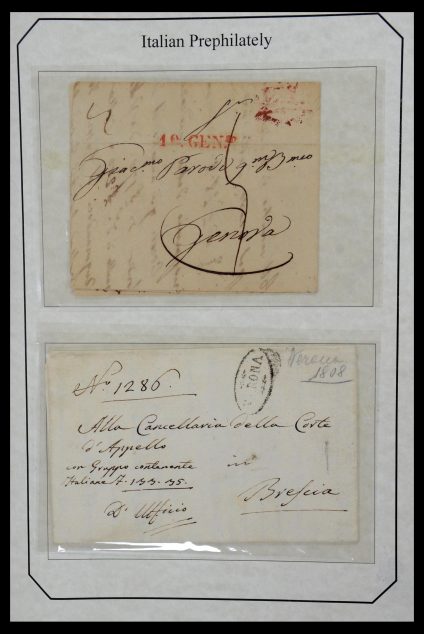 Italian Prephilately
10. GEN.
Giac.mo Parodi q.m B.meo
Genova
VERONA
Verona
1808
No. 1286.
Alla Cancellaria della Corte
d'Appello
con Gruppo contenente
in
Italiane £. 133.35.
Brescia
D'Uffizio